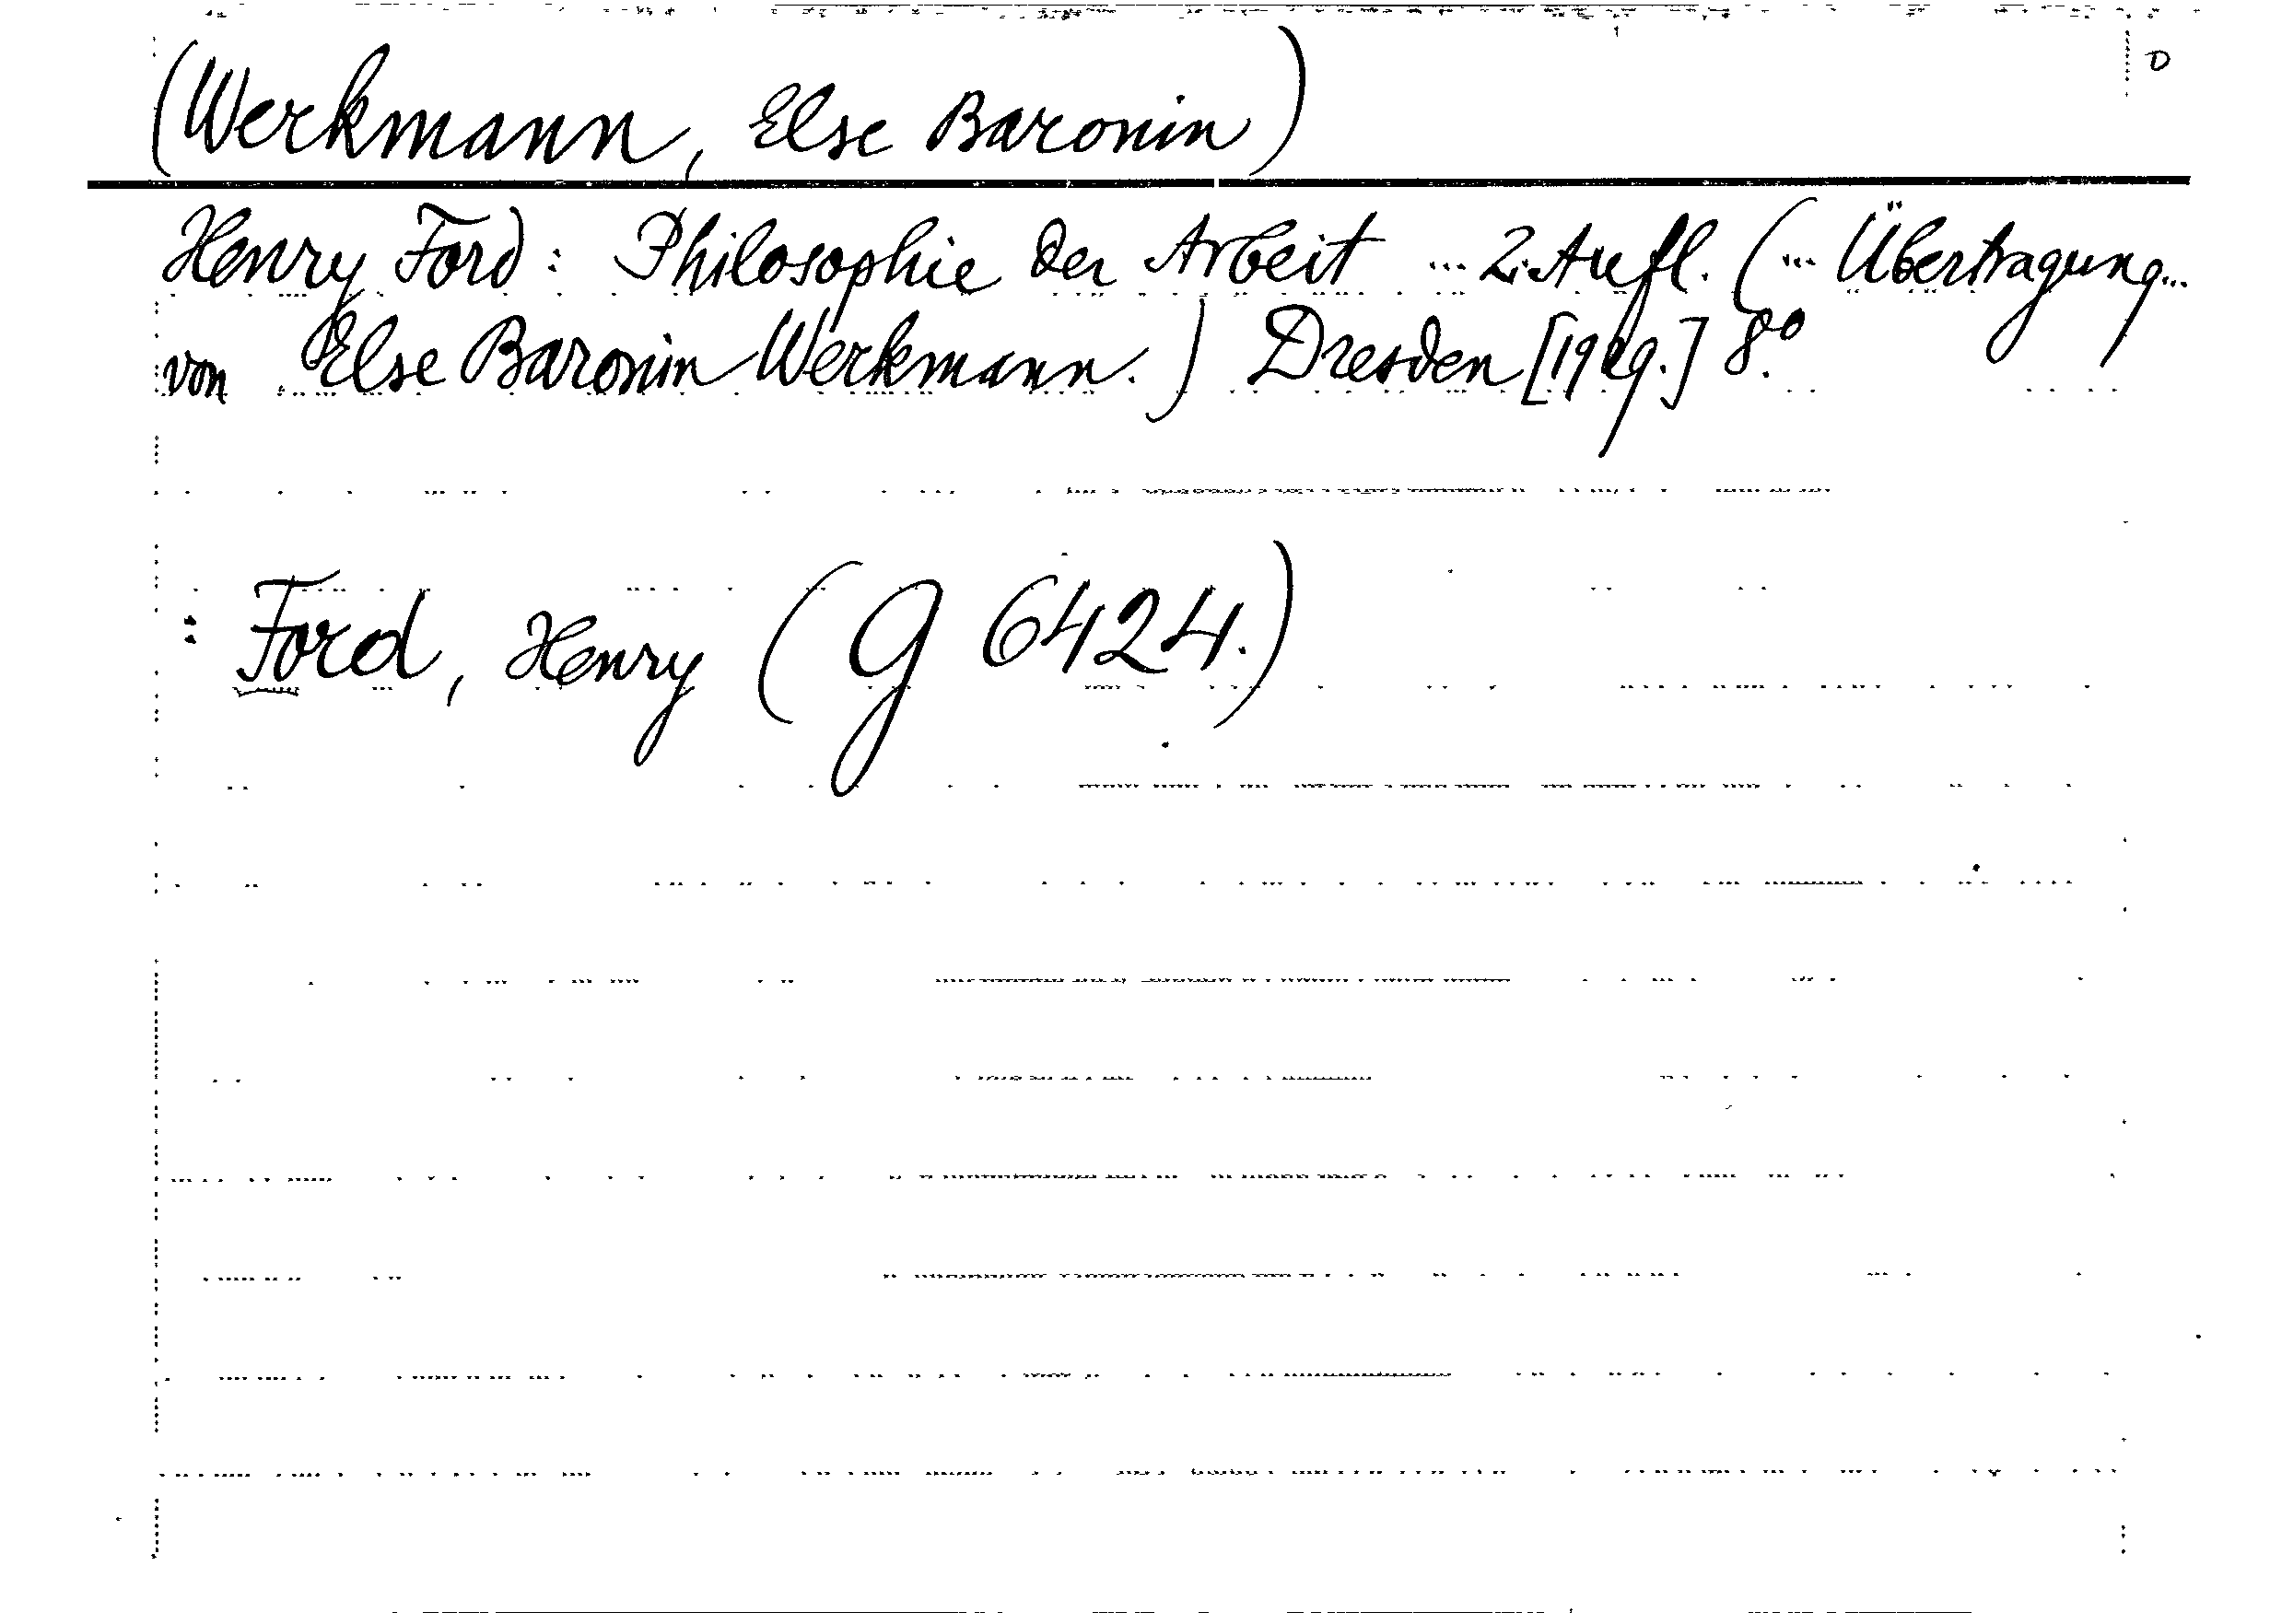 D
(Werkmann, Else Baronin)
Henry Ford: Philosophie der Arbeit ... 2. Aufl. (... Übertragung...
von Else Baronin Werkmann.) Dresden [1929.] 8.°
: Ford, Henry (G 6424.)